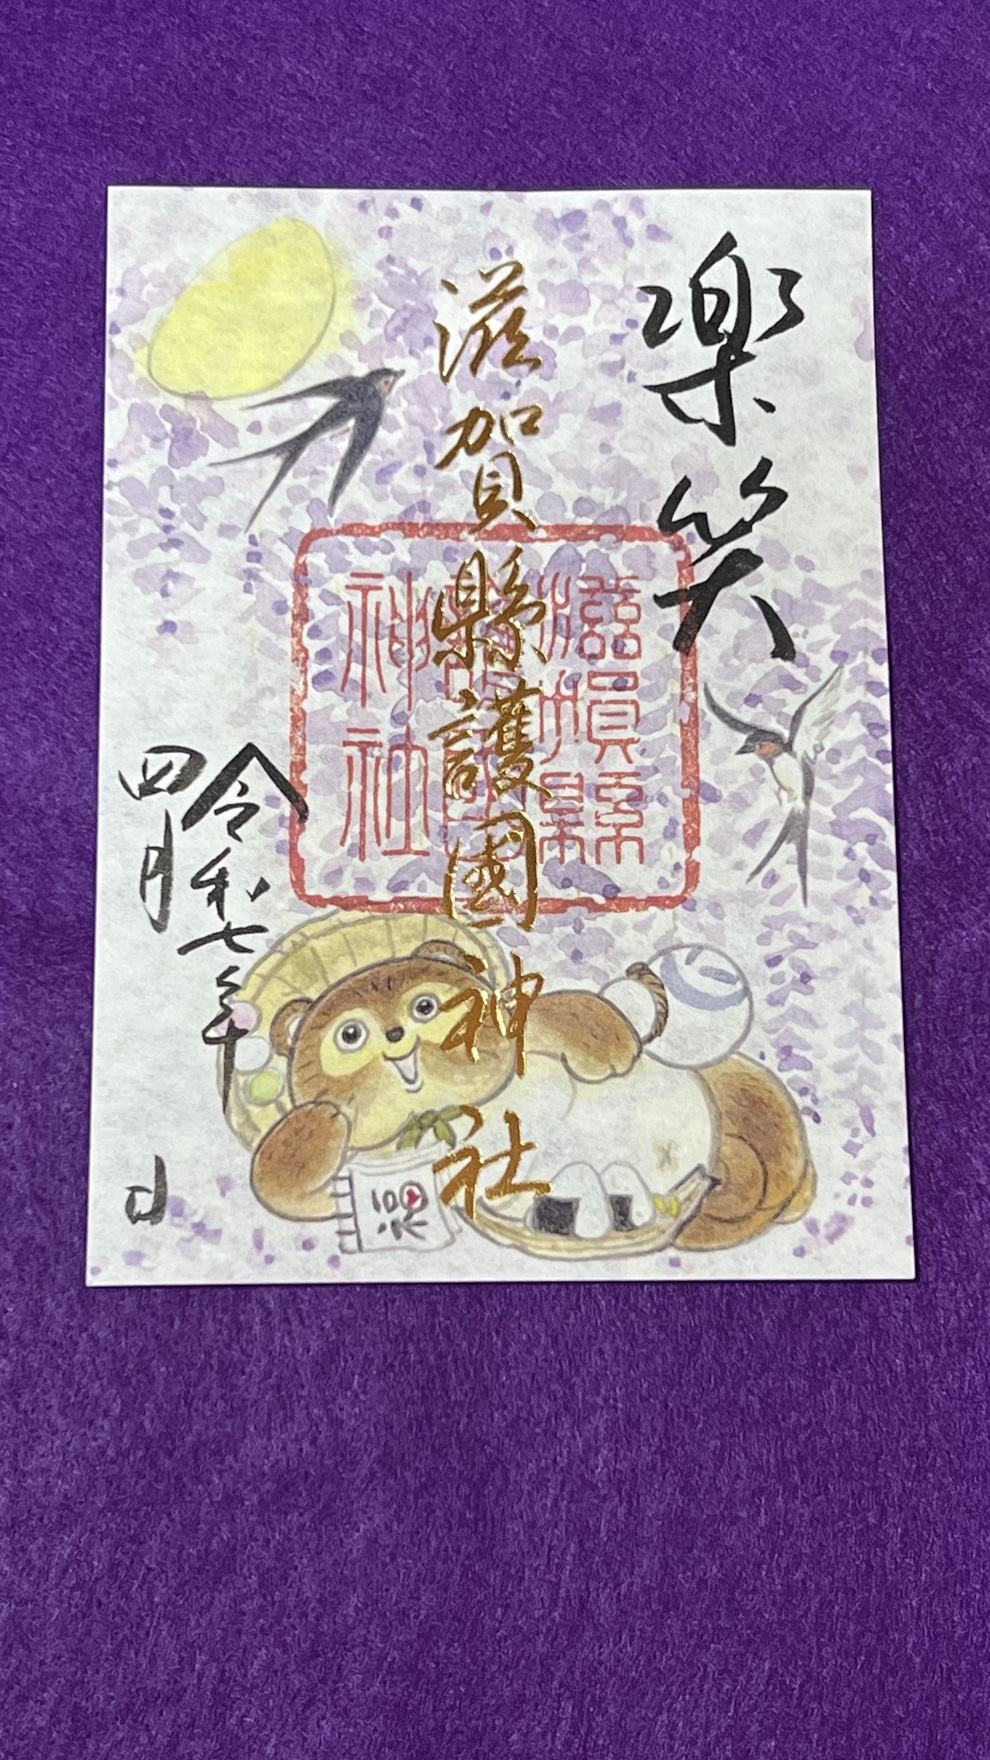 楽笑
滋賀縣護國神社
滋賀縣
護國
神社
令和七年
四月
日